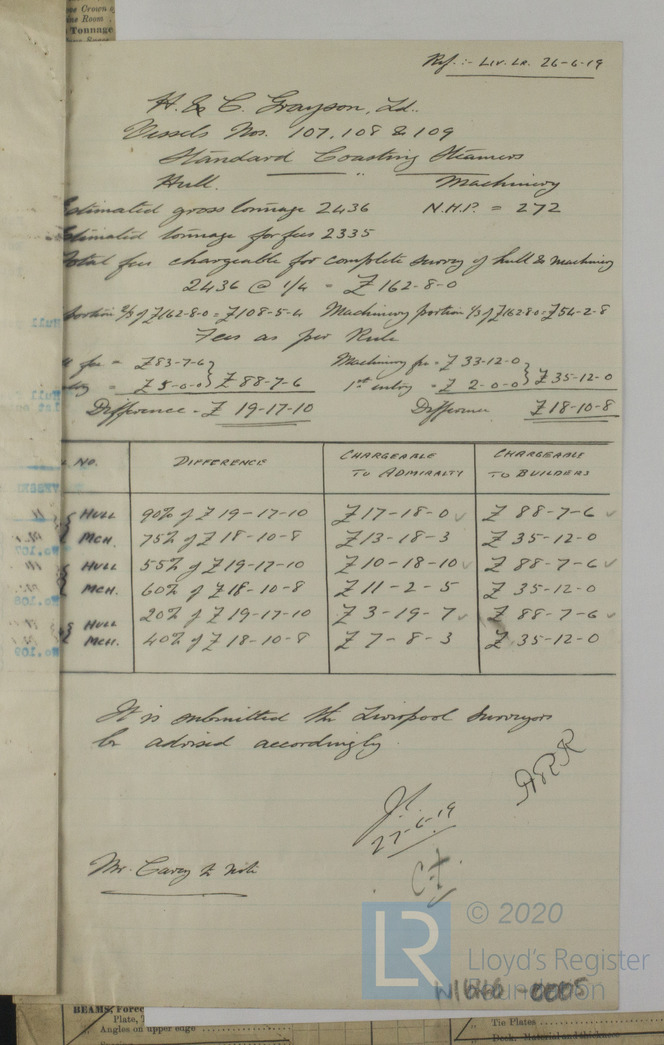 Ref. :- Liv. Lr. 26-6-19
H. & C. Grayson, Ld.
Vessels Nos. 107, 108 & 109
Standard Coasting Steamers
Hull. Machinery
Estimated gross tonnage 2436 N.H.P. = 272
Estimated tonnage for fees 2335
Total fees chargeable for complete survey of hull & machinery
2436 @ 1/4 = £162-8-0
portion 2/3 of £162-8-0 = £108-5-4 Machinery portion 1/3 of £162-8-0 = £54-2-8
Fees as per Rule
fee = £83-7-6 } Machinery fee = £33-12-0 }
= £5-0-0 } £88-7-6 1st entry = £2-0-0 } £35-12-0
Difference = £19-17-10 Difference £18-10-8
No. DIFFERENCE CHARGEABLE TO ADMIRALTY CHARGEABLE TO BUILDERS
{ HULL 90% of £19-17-10 £17-18-0 ✓ £88-7-6 ✓
MCH. 75% of £18-10-8 £13-18-3 £35-12-0
{ HULL 55% of £19-17-10 £10-18-10 ✓ £88-7-6 ✓
MCH. 60% of £18-10-8 £11-2-5 £35-12-0
{ HULL 20% of £19-17-10 £3-19-7 ✓ £88-7-6 ✓
MCH. 40% of £18-10-8 £7-8-3 £35-12-0
It is submitted the Liverpool Surveyors
be advised accordingly.
27-6-19
Mr. Carey to note
LR © 2020
Lloyd's Register
Foundation
W1646-0005
BEAMS, Force
Plate,
Angles on upper edge
Tie Plates
Deck, Material and thickness
Tonnage